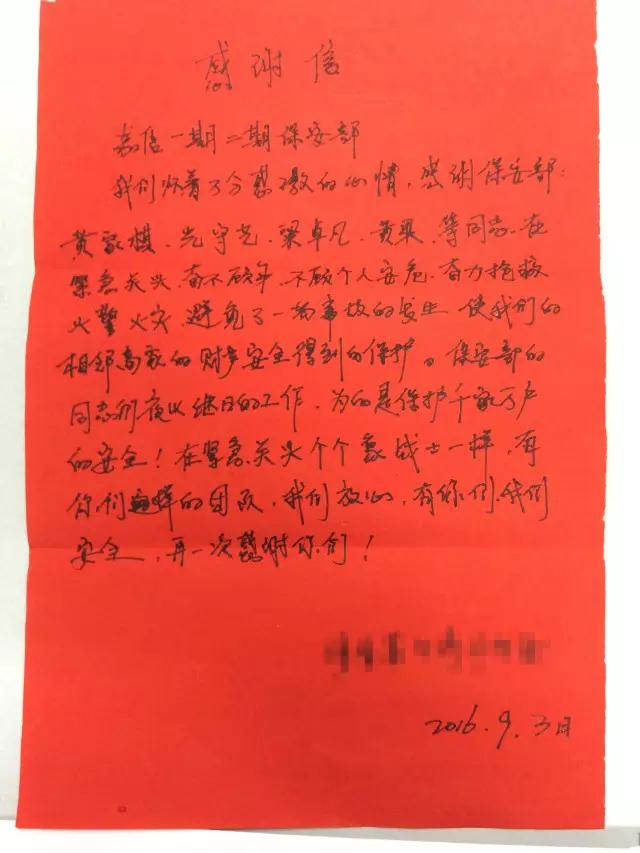 感谢信
嘉信一期二期保安部
我们怀着了分感激的心情，感谢保安部：
黄家棋、先守艺、梁卓凡、黄梁、等同志、在
紧急关头，奋不顾身，不顾个人安危，奋力抢救
火警火灾，避免了一场事故的发生，使我们的
相邻高家的财产安全得到的保护。保安部的
同志们夜以继日的工作，为的是保护千家万户
的安全！在紧急关头个个象战士一样，有
你们这样的团队，我们放心，有你们我们
安全，再一次感谢你们！
2016.9.3日